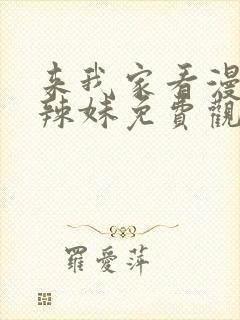 来我家看漫
辣妹免費觀
羅愛萍